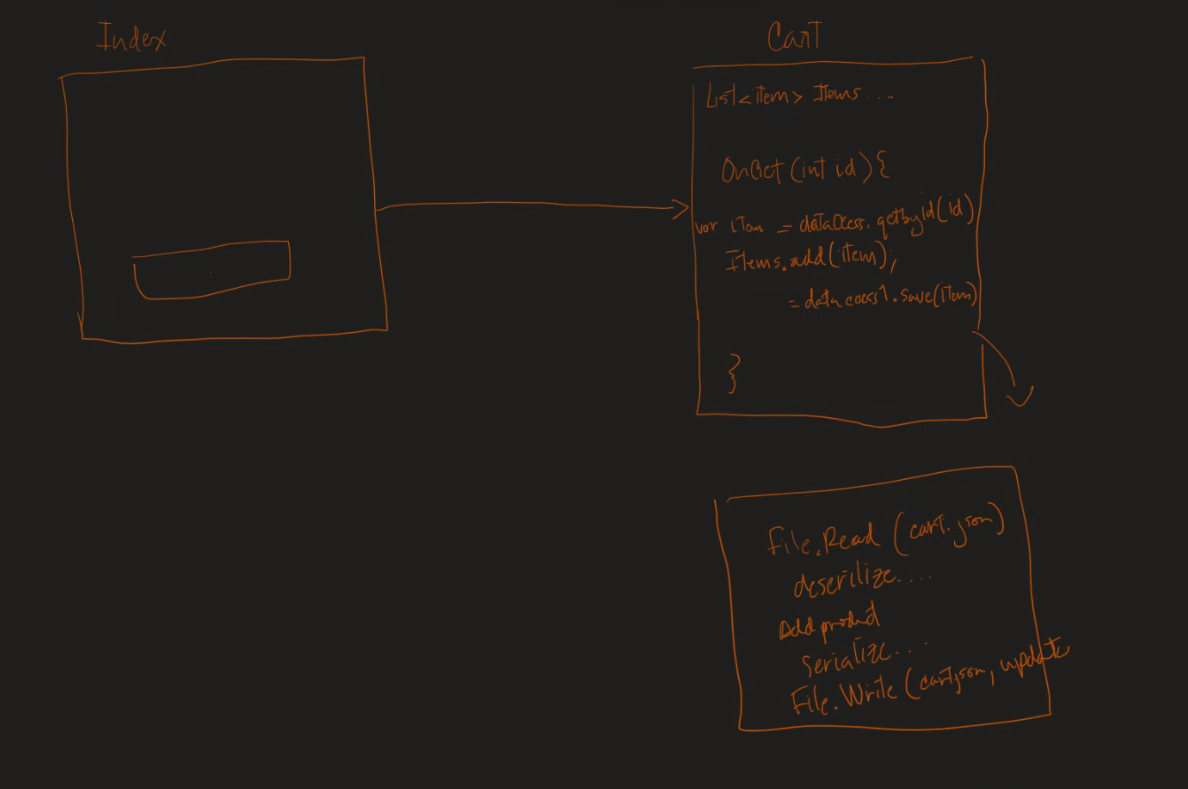 Index
Cart
List<item> Items...
OnGet(int id){
var item = dataAccess.getbyid(id)
Items.add(item);
= dataccess1.save(item)
}
File.Read (cart.json)
deserilize....
Add product
Serialize...
File.Write (cart.json, update